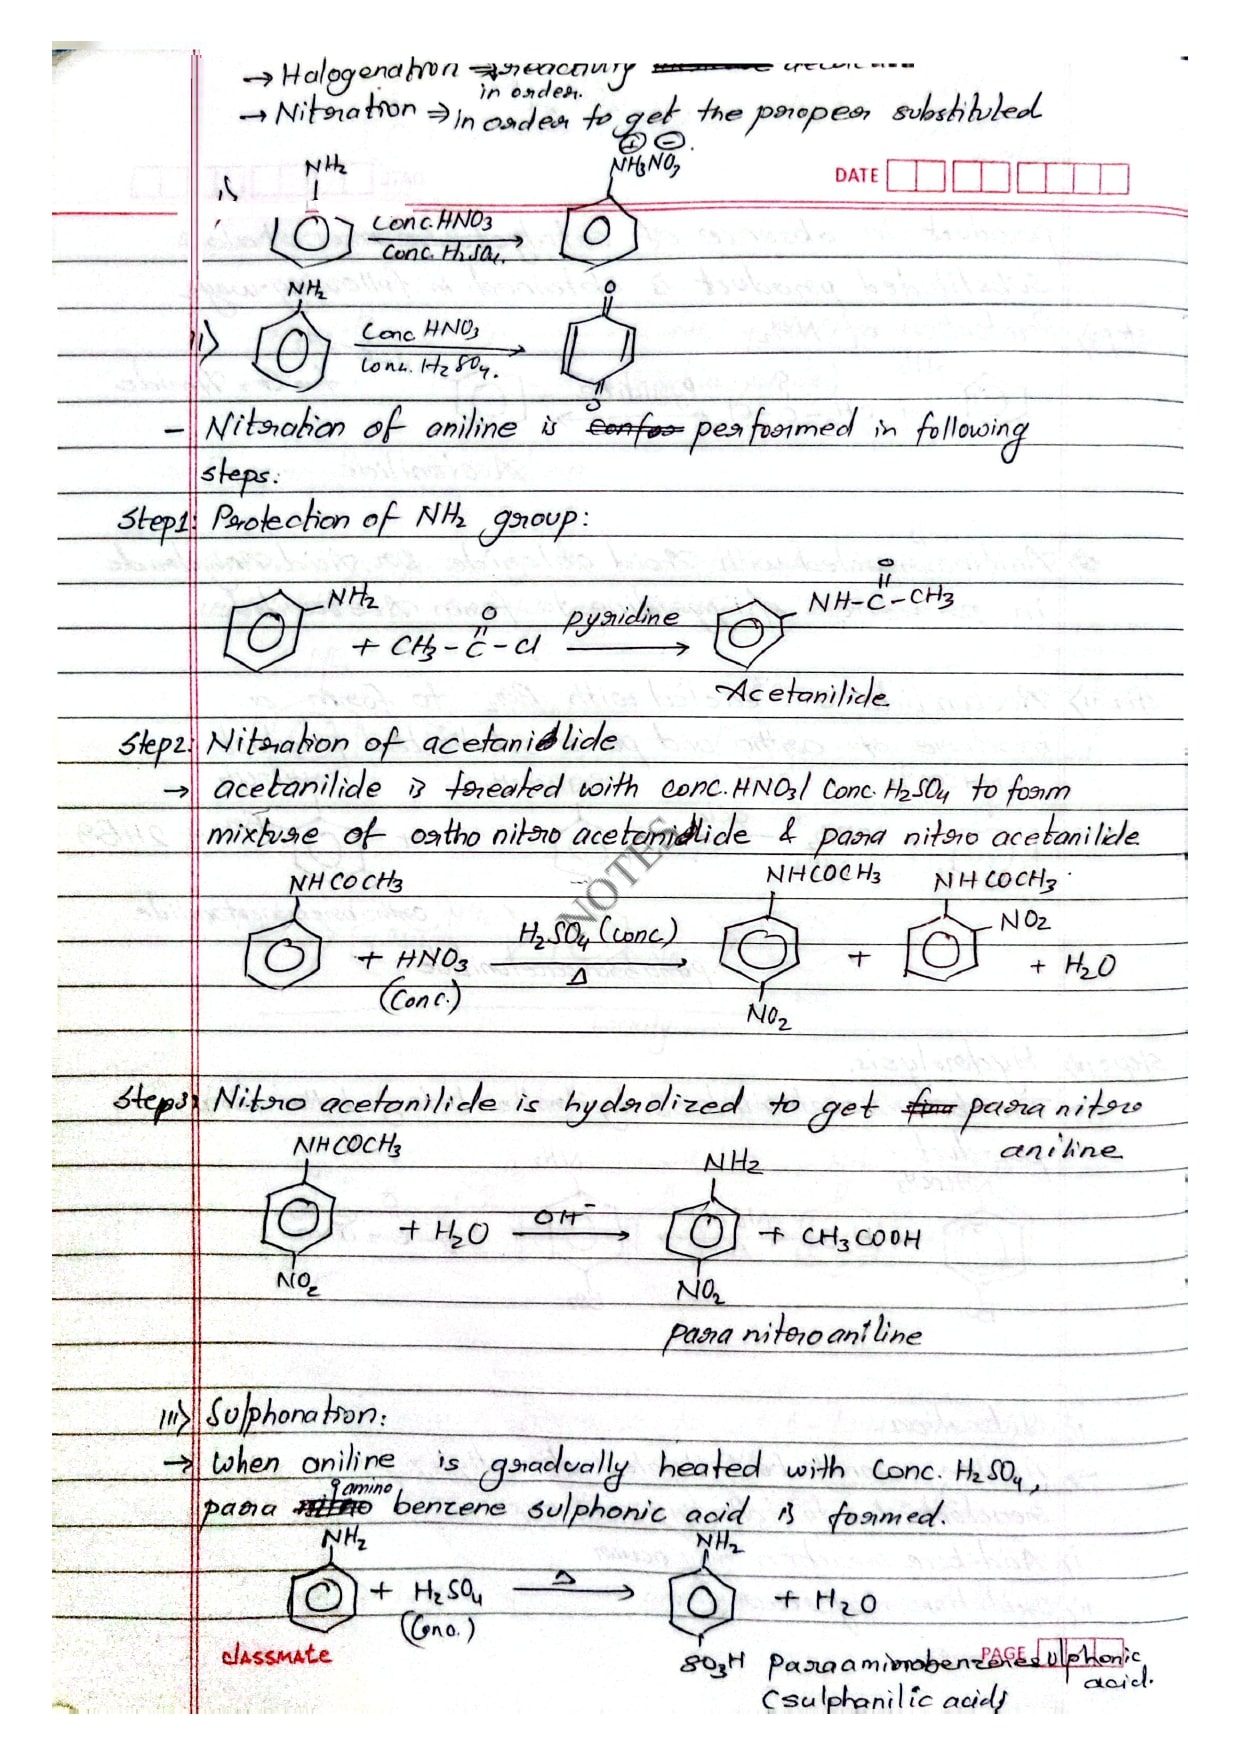 → Halogenation ⇒ reactivity
in order.
→ Nitration ⇒ in order to get the proper substituted
DATE
i)
NH₂
Conc. HNO₃
Conc. H₂SO₄.
⊕ ⊖
NH₃NO₃
ii)
NH₂
Conc HNO₃
Conc. H₂SO₄.
O
O
– Nitration of aniline is performed in following
steps:
Step1: Protection of NH₂ group:
NH₂ + CH₃-C(=O)-Cl pyridine → NH-C(=O)-CH₃
Acetanilide
Step2: Nitration of acetanilide
→ acetanilide is treated with conc. HNO₃/ Conc. H₂SO₄ to form
mixture of ortho nitro acetanilide & para nitro acetanilide
NOTES
NHCOCH₃ NHCOCH₃ NHCOCH₃
+ HNO₃ (Conc.) H₂SO₄ (Conc) Δ → + NO₂ + H₂O
NO₂
Step3: Nitro acetanilide is hydrolized to get para nitro
aniline
NHCOCH₃ NH₂
+ H₂O OH⁻ → + CH₃COOH
NO₂ NO₂
para nitroaniline
iii) Sulphonation:
→ When aniline is gradually heated with Conc. H₂SO₄,
amino
para benzene sulphonic acid is formed.
NH₂ NH₂
+ H₂SO₄ Δ → + H₂O
(Conc.)
classmate
PAGE
SO₃H Paraaminobenzenesulphonic
acid.
(sulphanilic acid)